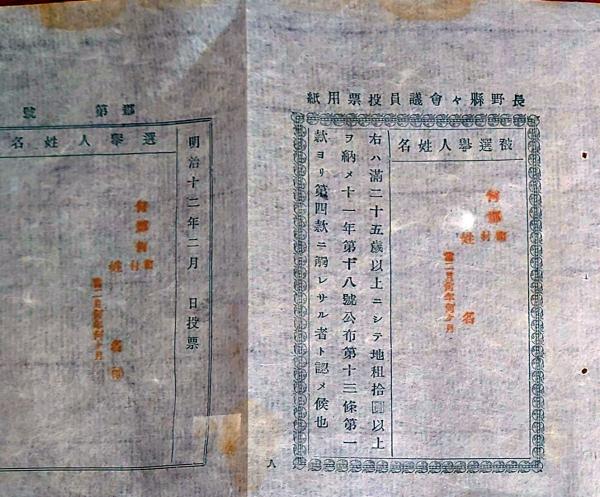 長野縣々會議員投票用紙
被選擧人姓名
何郡何
町
村
姓名
當二月何年何ヶ月
右ハ滿二十五歲以上ニシテ地租拾圓以上
ヲ納メ十一年第十八號公布第十三條第一
款ヨリ第四款ニ觸レサル者ト認メ候也
八
郡第 號
選擧人姓名
何郡何
町
村
姓名印
當二月何年何ヶ月
明治十二年二月 日投票